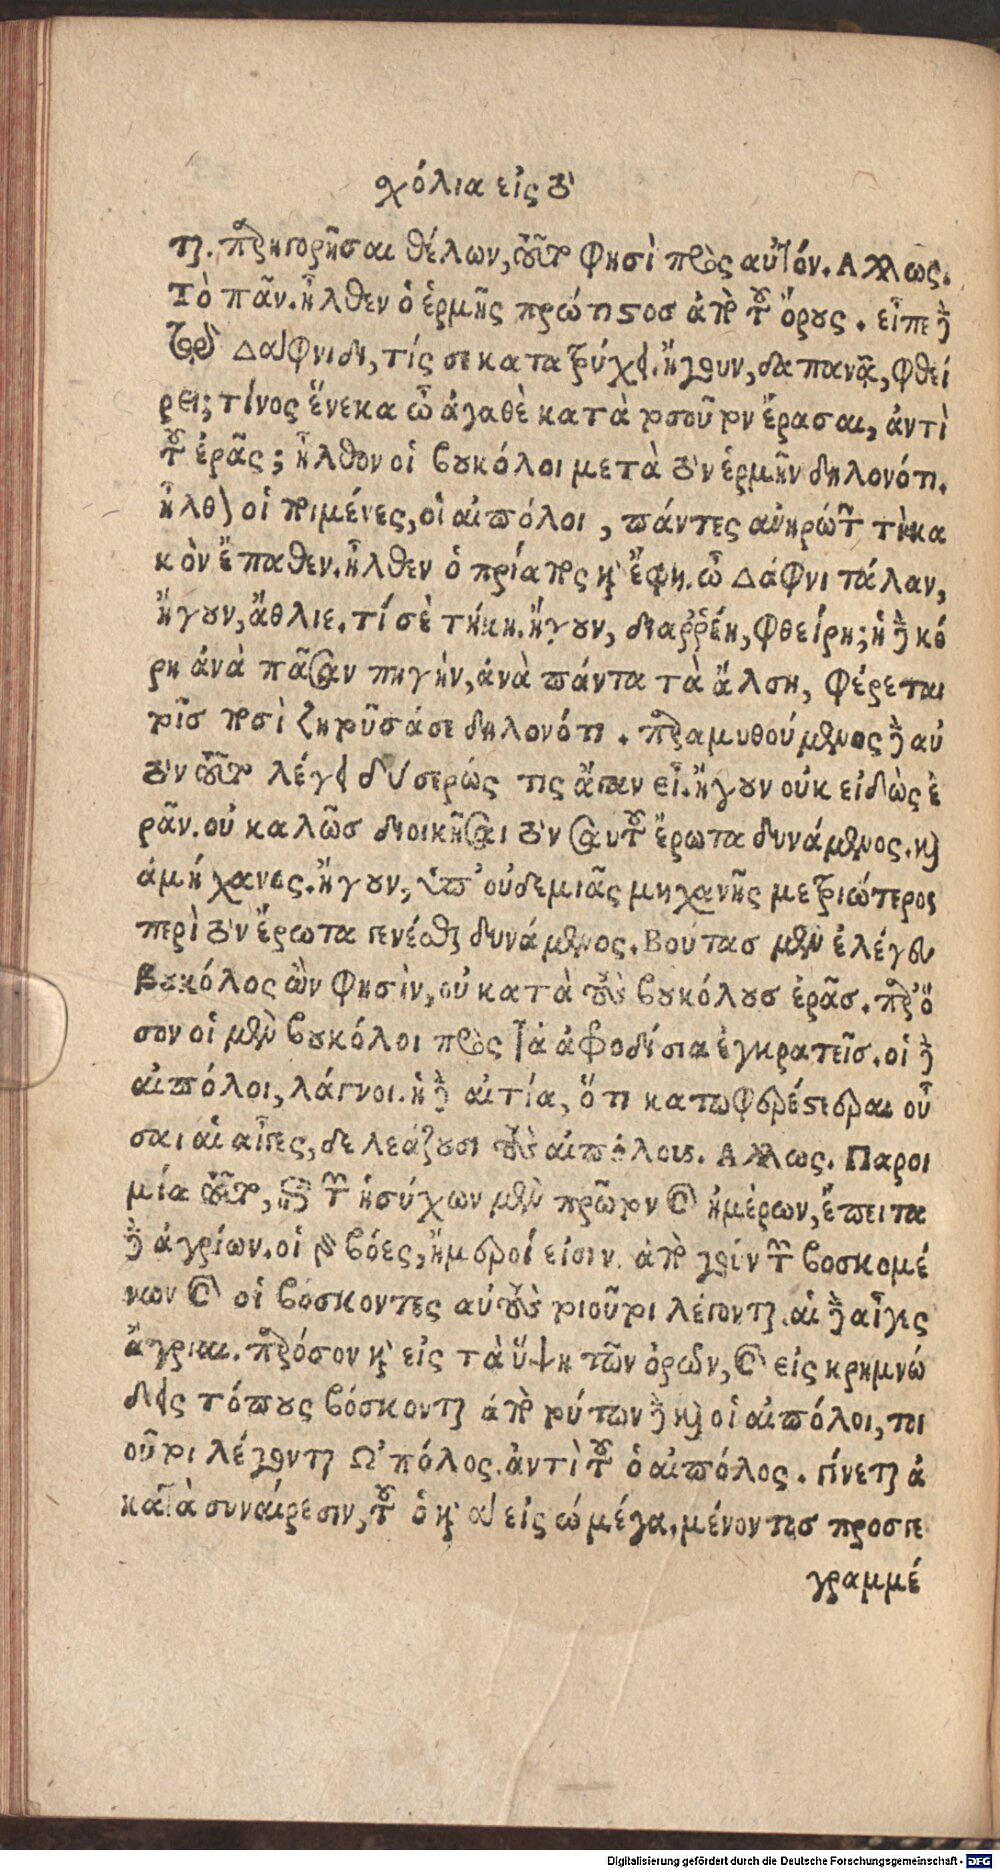 σχόλια εἰς τὸ
παρηγορῆσαι θέλων, τοῦτο φησὶ πρὸς αὐτόν. Αλλως.
Τὸ πᾶν. ἦλθεν ὁ ἑρμῆς πρώτιςος ἀπὸ τοῦ ὄρους. εἶπε δὲ
Δάφνιδι, τίς σε κατατρύχει. ἤγουν, δαπανᾷ, φθεί
ρει; τίνος ἕνεκα ὦ ἀγαθὲ κατὰ τοσοῦτον ἔρασαι, ἀντὶ
τοῦ ἐρᾷς; ἦλθον οἱ βουκόλοι μετὰ τὸν ἑρμῆν δηλονότι.
ἦλθον οἱ ποιμένες, οἱ αἰπόλοι, πάντες ἀνηρώτων τί κα
κὸν ἔπαθεν. ἦλθεν ὁ πρίαπος καὶ ἔφη. ὦ Δάφνι τάλαν,
ἤγουν, ἄθλιε. τί σὲ τήκῃ. ἤγουν, διαρρέῃ, φθείρῃ; ἡ δὲ κό
ρη ἀνὰ πᾶσαν πηγὴν, ἀνὰ πάντα τὰ ἄλση, φέρεται
τοῖσ ποσὶ ζητοῦσά σε δηλονότι. παραμυθούμενος δὲ αὐ
τὸν τοῦτο λέγει δύσερώς τις ἄγαν εἶ. ἤγουν οὐκ εἰδὼς ἐ
ρᾶν. οὐ καλῶσ διοικῆσαι τὸν σαυτοῦ ἔρωτα δυνάμενος. καὶ
ἀμήχανος. ἤγουν, ὑπ' οὐδεμιᾶς μηχανῆς μετριώτερος
περὶ τὸν ἔρωτα γενέσθαι δυνάμενος. Βούτασ μὲν ἐλέγου
βουκόλος ὢν φησὶν, οὐ κατὰ τοὺς βουκόλουσ ἐρᾷσ. παρ' ὅ
σον οἱ μὲν βουκόλοι πρὸς τὰ ἀφροδίσια ἐγκρατεῖσ. οἱ δὲ
αἰπόλοι, λάγνοι. ἡ δὲ αἰτία, ὅτι κατωφερέςεραι οὖ
σαι αἱ αἶγες, δελεάζουσι τοὺς αἰπόλους. Αλλως. Παροι
μία τοῦτο, τῶν ἡσύχων μὲν πρῶτον καὶ ἡμέρων, ἔπειτα
δὲ ἀγρίων. οἱ γὰρ βόες, ἥμεροί εἰσιν. ἀπὸ γοῦν τῶν βοσκομέ
νων καὶ οἱ βόσκοντες αὐτοὺς τοιοῦτοι λέγονται. αἱ δὲ αἶγες
ἄγριαι. παρόσον καὶ εἰς τὰ ὕψη τῶν ὀρῶν, καὶ εἰς κρημνώ
δεις τόπους βόσκονται ἀπὸ τούτων δὲ καὶ οἱ αἰπόλοι, τοι
οῦτοι λέγονται Ω' πόλος. ἀντὶ τοῦ ὁ αἰπόλος. γίνεται δ
κατὰ συναίρεσιν, τοῦ ὁ καὶ αἰ εἰς ω μέγα. μένοντοσ προσγε
γραμμέ